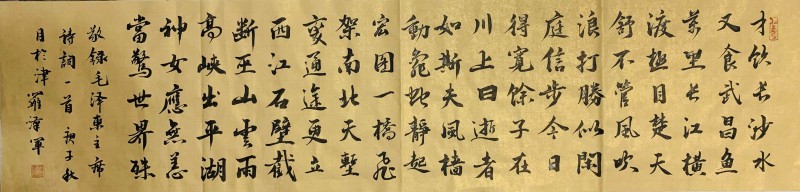 才饮长沙水
又食武昌魚
萬里长江橫
渡極目楚天
舒不管風吹
浪打勝似閒
庭信步今日
得寬餘子在
川上曰逝者
如斯夫風檣
動龜蛇靜起
宏图一橋飛
架南北天塹
變通途更立
西江石壁截
断巫山雲雨
高峽出平湖
神女應無恙
當驚世界殊
敬録毛澤東主席
詩詞一首 庚子秋
月於津 羅澤軍